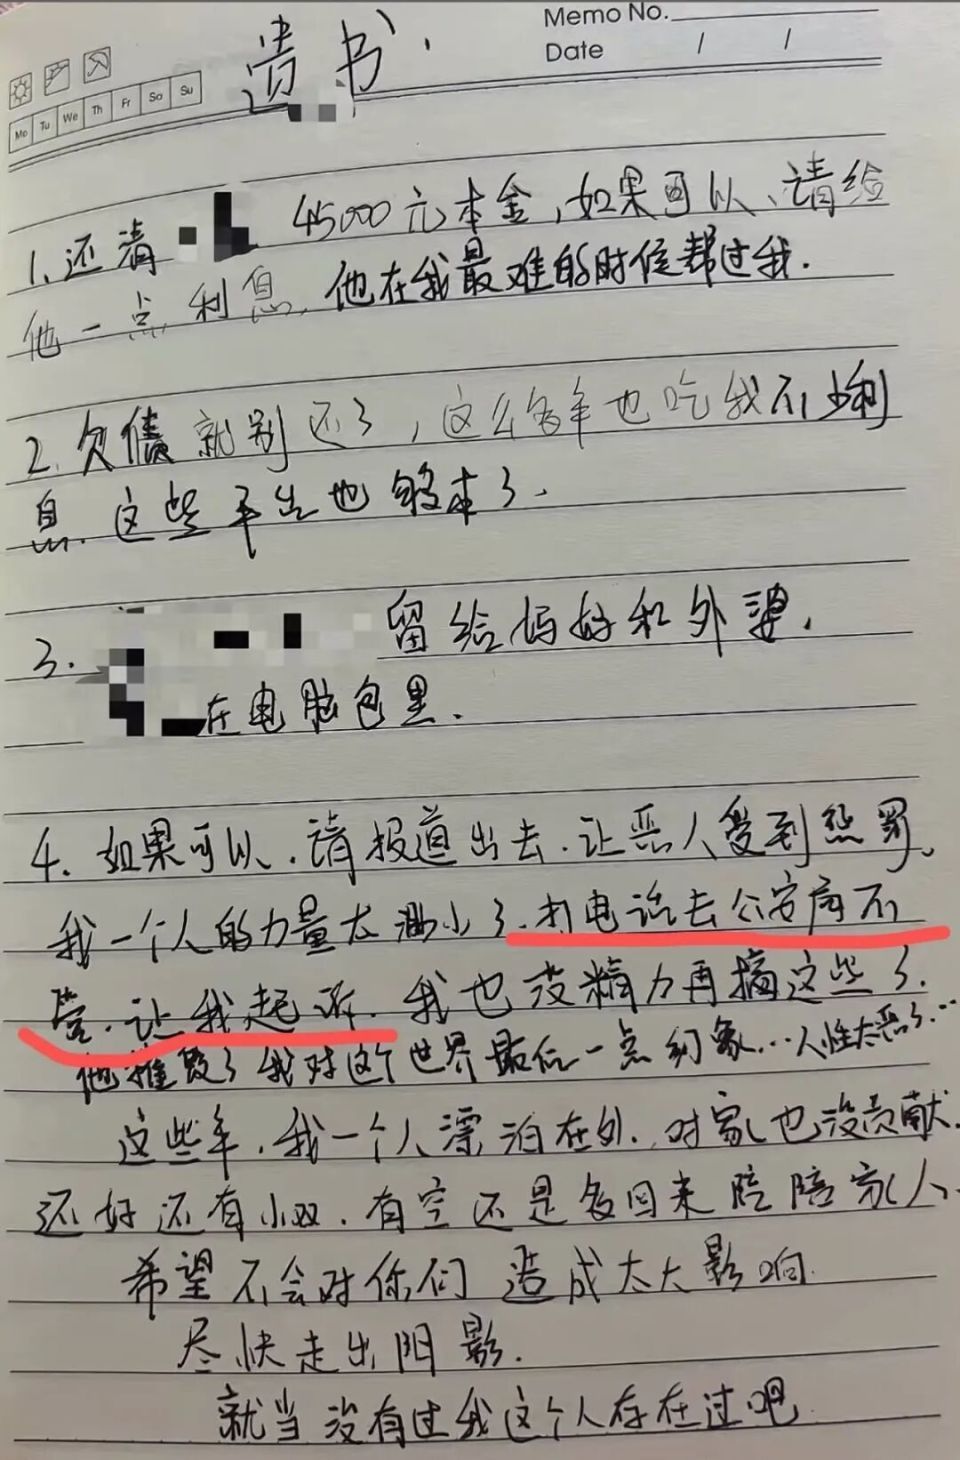 Memo No.
Date / /
Mo Tu We Th Fr Sa Su
遗书.
1.还清 45000元本金,如果可以、请给
他一点利息,他在我最难的时候帮过我.
2.欠债就别还了,这么多年也吃我不少利
息.这些平台也够本了.
3. 留给妈妈和外婆,
在电脑包里.
4.如果可以.请报道出去.让恶人受到惩罚.
我一个人的力量太渺小了.打电话去公安局不
管.让我起诉.我也没精力再搞这些了.
他摧毁了我对这个世界最后一点幻象...人性太恶了...
这些年,我一个人漂泊在外.对家也没贡献.
还好还有小双.有空还是多回来陪陪家人.
希望不会对你们造成太大影响.
尽快走出阴影.
就当没有过我这个人存在过吧